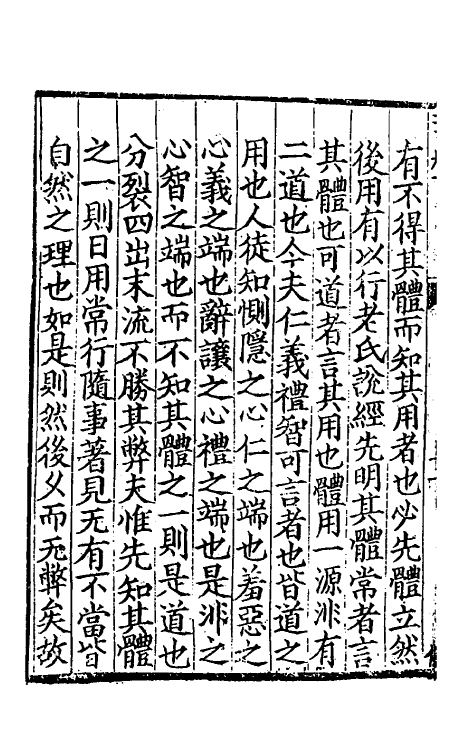 有不得其體而知其用者也必先體立然
後用有以行老氏說經先明其體常者言
其體也可道者言其用也體用一源非有
二道也今夫仁義禮智可言者也皆道之
用也人徒知惻隱之心仁之端也羞惡之
心義之端也辭讓之心禮之端也是非之
心智之端也而不知其體之一則是道也
分裂四出末流不勝其弊夫惟先知其體
之一則日用常行隨事著見无有不當皆
自然之理也如是則然後久而无弊矣故